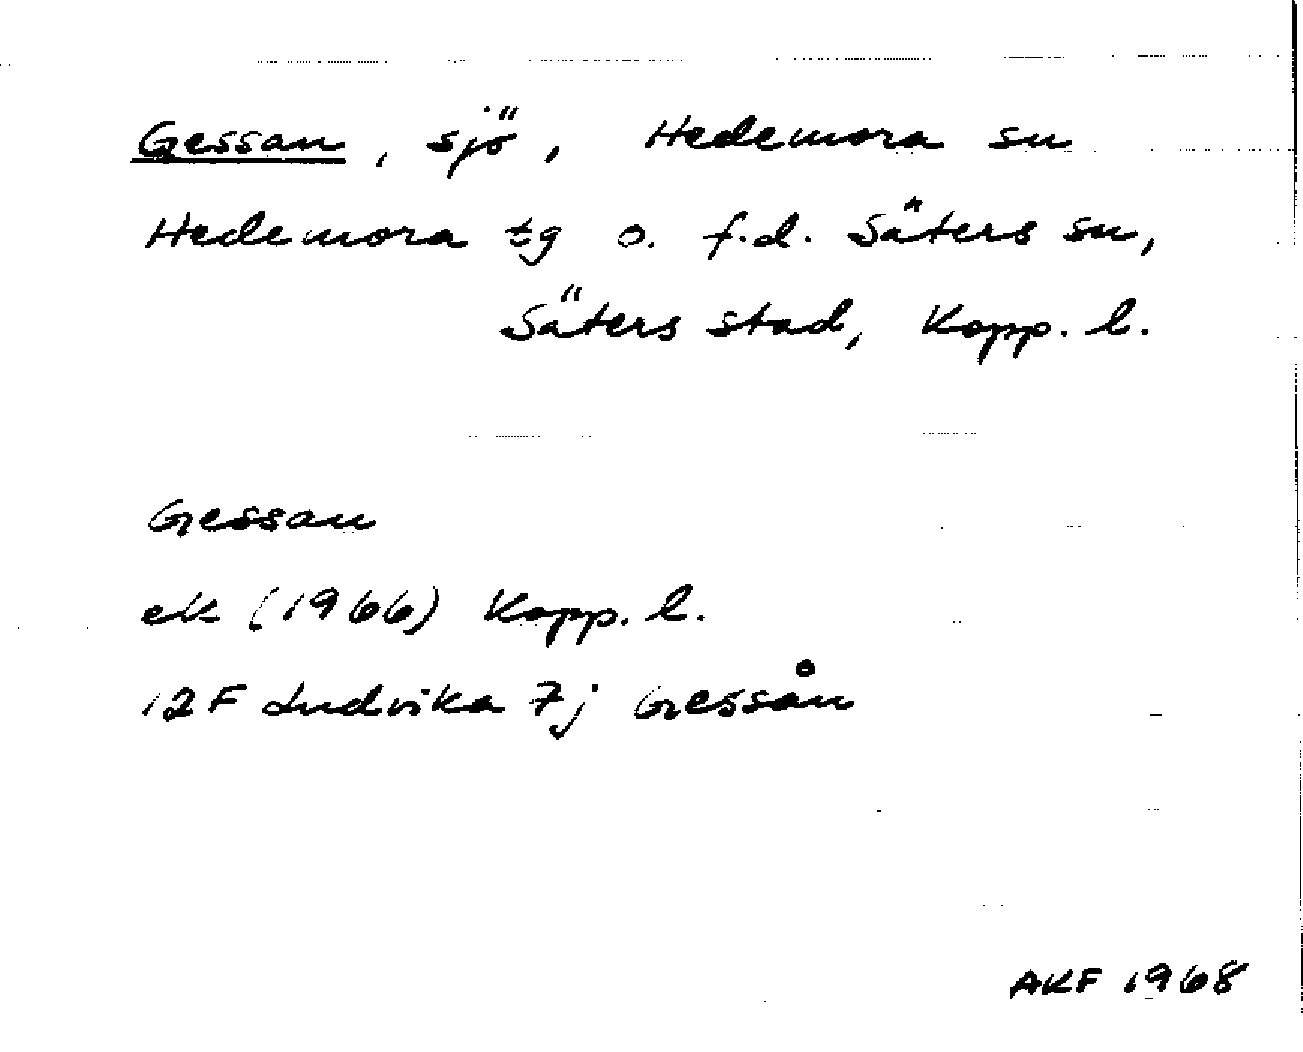 Gessan, sjö, Hedemora sn
Hedemora tg o. f.d. Säters sn,
Säters stad, Kopp. l.
Gessan
ek (1966) Kopp. l.
12F Ludvika 7j Gessån
AKF 1968